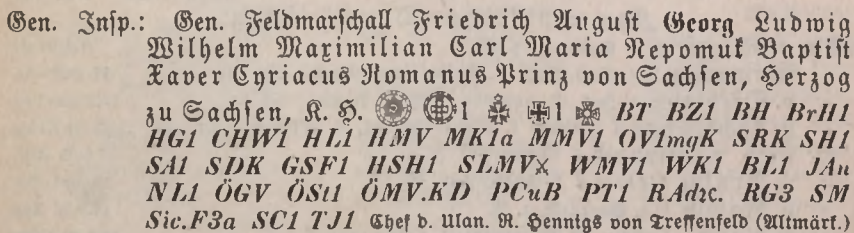 Gen. Insp.: Gen. Feldmarschall Friedrich August Georg Ludwig
Wilhelm Maximilian Carl Maria Nepomuk Baptist
Xaver Cyriacus Romanus Prinz von Sachsen, Herzog
zu Sachsen, K. H. 1 1 BT BZ1 BH BrH1
HG1 CHW1 HL1 HMV MK1a MMV1 OV1mgK SRK SH1
SA1 SDK GSF1 HSH1 SLMVX WMV1 WK1 BL1 JAn
NL1 ÖGV ÖSt1 ÖMV.KD PCuB PT1 RAdzc. RG3 SM
Sic.F3a SC1 TJ1 Chef d. Ulan. R. Hennigs von Treffenfeld (Altmärk.)